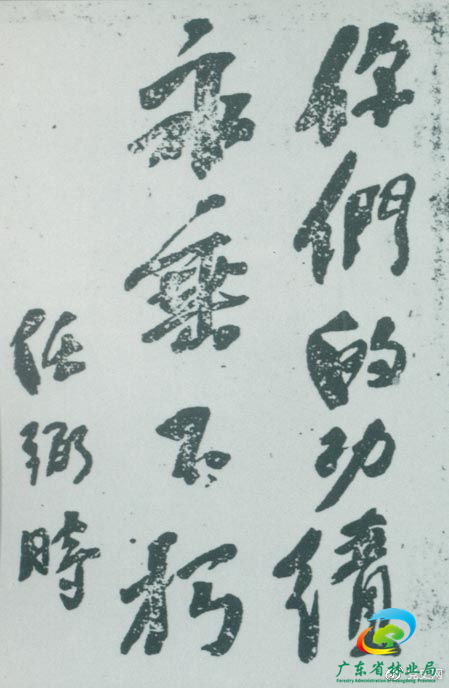 你們的功績
永垂不朽
任弼時
广东省林业局
Forestry Administration of Guangdong Province